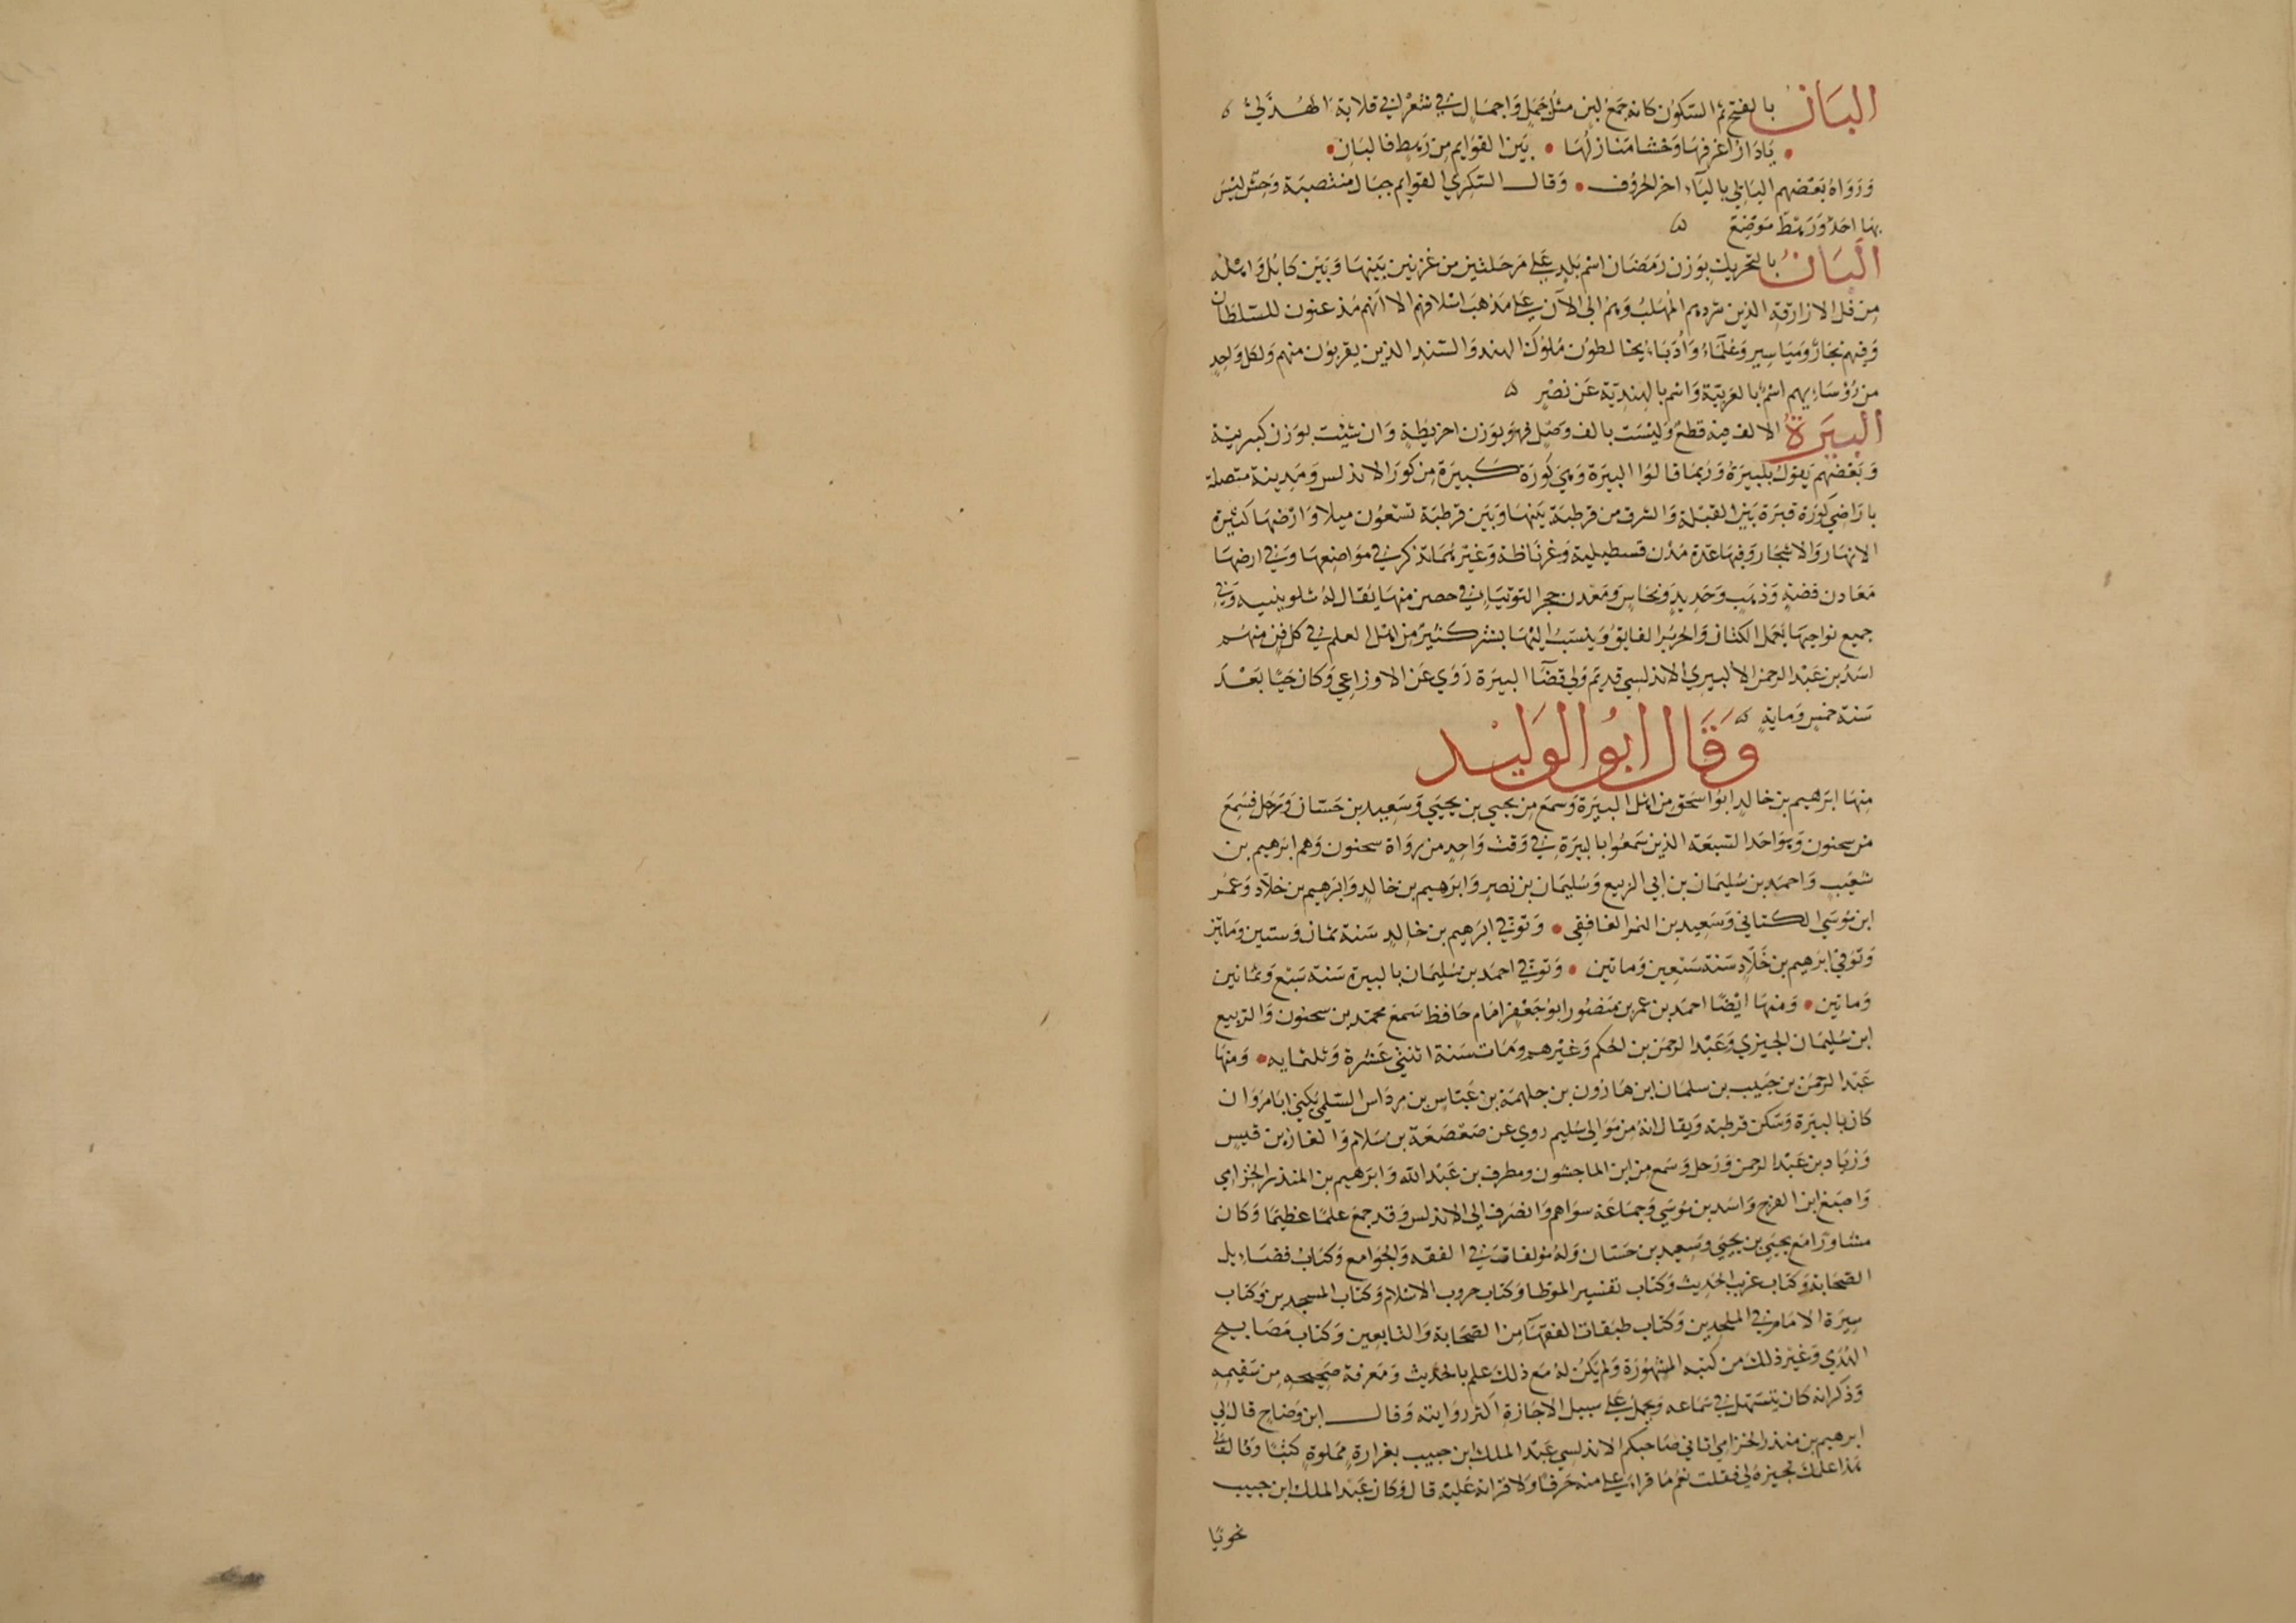 البَانُ بالفتح ثم السّكون كانه جمع لبن مثل جَمَل وَاجمال في شعْر ابي قلابة الهُذَلي ه
يَا دَارُ اعرفهَا وَحْشا مَنازلُهَا • بَين القوَايم من رَهط فالبَانِ •
وَرَوَاهُ بَعضهم اليَاني باليَآء اخر الحروف • وَقال السّكري القوايم جبَال منتصبَة وَحش ليسَ
بهَا احَد وَرَهط مَوضِع ه
الَبَانُ بالتحريك بوَزن رَمَضَان اسْم بَلد على مَرحَلتين من غزنين بَينهَا وَبَين كابُل وَاهْله
مِن فَل الازارقة الذين شردهم المُهَلبُ وَهُم الى الآن على مَذهَب اسْلافهم الا انهم مُذعنون للسّلطان
وَفيهم تجارٌ وَمَيَاسِير وَعُلمَاءُ وَأُدَبَاءُ يخالطون مُلوك الهند وَالسّند الذين يقربُون منهم وَلكل وَاحِدٍ
من رُؤسَاءِيهم اسْمٌ بالعَربيّة وَاسْم بالهنديّة عَن نصْر ه
البيَرَةُ الالف فيه قطعٌ وَليْسَت بالف وَصْل فهوَ بوَزن اخريطة وَان شيْت بوَزن كبريتة
وَبَعْضهم يَقول بلبيرَةُ وَرُبمَا قالوُا البيرَة وَهيَ كُورَة كبيَرَة مِن كورَ الاندلس وَمَدينة متصلة
باراضي كورَة قبرَة بَين القبْلة وَالشرق من قرطبَة بَينهَا وَبَين قرطبَة تسْعُون ميلا وَارْضهَا كثيرَة
الانهَار وَالاشجَار وَفيهَا عدّة مُدُن قسطيلية وَغرناطة وَغيْر هُمَا تذكر في مَوَاضعهَا وَفي ارضهَا
مَعَادن فضةٍ وَذهَبٍ وَحَديدٍ وَنحَاسٍ وَمَعْدن حجر التوتيَا في حصن منهَا يُقال لهُ شلوبينيه وَفي
جميع نواحِيهَا يُعمَل الكتان وَالحرير الفايق وَينسَبُ اليْهَا بشر كثير من اهْل العلم في كل فن منهُم
اسَدُ بن عَبْد الرحمن الألبيري الاندلسي قديم وَلي قضَآ البيرَة رَوَي عَن الاوزاعي وَكان حَيّا بَعْدَ
سَنة خمسٍ وَمايةٍ ه
وَقَال ابُو الوَليْد
مِنهَا ابرَهيم بن خالد ابوُ اسحَق من اهْل البيرَة وَسمعَ من يحيى بن يحيَى وَسَعِيد بن حَسّان وَرَحَل فسَمِعَ
من سحنون وَهوَ احَد السَّبعَة الذين سَمعُوا بالبيرَة في وَقت وَاحدٍ من رواة سحنون وَهم ابرَهيم بن
شعَيْب وَاحمد بن سُليمَان بن ابي الربيع وَسُليمَان بن نصر وَابرَهيم بن خالد وَابرَهيم بن خلّاد وَعمُر
ابن مُوسَى الكناني وَسَعيد بن النمر الغافقي • وَتوفي ابرَهيم بن خالد سَنة ثمان وَستين وَماتين
وَتوفي ابرَهيم بن خَلّاد سَنة سَبْعين وَماتين • وَتوفي احمَد بن سُليمَان بالبيرة سَنة سَبْع وَثمانين
وَماتين • وَمنهَا ايضًا احمَد بن عمر بن مَنصُور ابو جَعْفر امَام حَافظ سَمعَ محمّد بن سحنون وَالرّبيع
ابن سُليمَان الجيزي وَعَبْد الرحمَن بن الحكم وَغيْرهم وَمَات سَنة اثنتي عَشرة وَثلثمايه • وَمنهَا
عَبْد الرحمَن بن حَبيب بن سلمان ابن هَارُون بن جلهمَة بن عَبَّاس بن مِردَاس السّلمي يَكنى ابَا مَروَان
كان بالبيرَة وَسَكن قرطبة وَيقال انهُ من مَوَالي سُليم روي عَن صَعْصَعَة بن سَلام وَالغاز بن قيس
وَزيَاد بن عَبْد الرحمن وَرَحل وَسَمع من ابن الماجشون وَمطرف بن عَبْد الله وَابرَهيم بن المنذر الخزامي
وَاصبَغ ابن الفرج وَاسَد بن مُوسَى وَجمَاعَة سوَاهم وَانصَرف الى الاندلس وَقد جمعَ علمًا عظيمًا وَكان
مشاورًا مَع يحيَى بن يحيَى وَسعيد بن حَسّان وَلهُ مؤلفات في الفقه وَالجوَامع وَكتاب فضَايل
الصّحَابة وَكتاب غريب الحَديث وَكتاب تفسير الموَطا وَكتاب حروب الاسْلام وَكتاب المسجدين وَكتاب
سيرَة الامَام في الملحدين وَكتاب طبقات الفقهَآ من الصّحَابة وَالتابعين وَكتاب مَصَابيح
الهُدَي وَغيْر ذلك من كتبه المشهورَة وَلم يكن لهُ مَع ذلك علم بالحَديث وَمَعرفة صَحيحه من سَقيمه
وَذكر انه كان يتسَهّل في سَمَاعه وَيحمل على سبيل الاجازة اكثر روَايته وَقال ابن وَضاح قال لي
ابرهيم بن منذر الخزامي اتاني صَاحبكم الاندلسي عَبْد الملك ابن حبيب بغرارةٍ مملوةٍ كتبًا وَقال لي
هَذا علمك تجيزهُ لي فقلت نعَم مَا قراء علي منه حَرفًا وَلا قراته عَليْه قال وَكان عَبْد الملك ابن حبيب
نحويًا